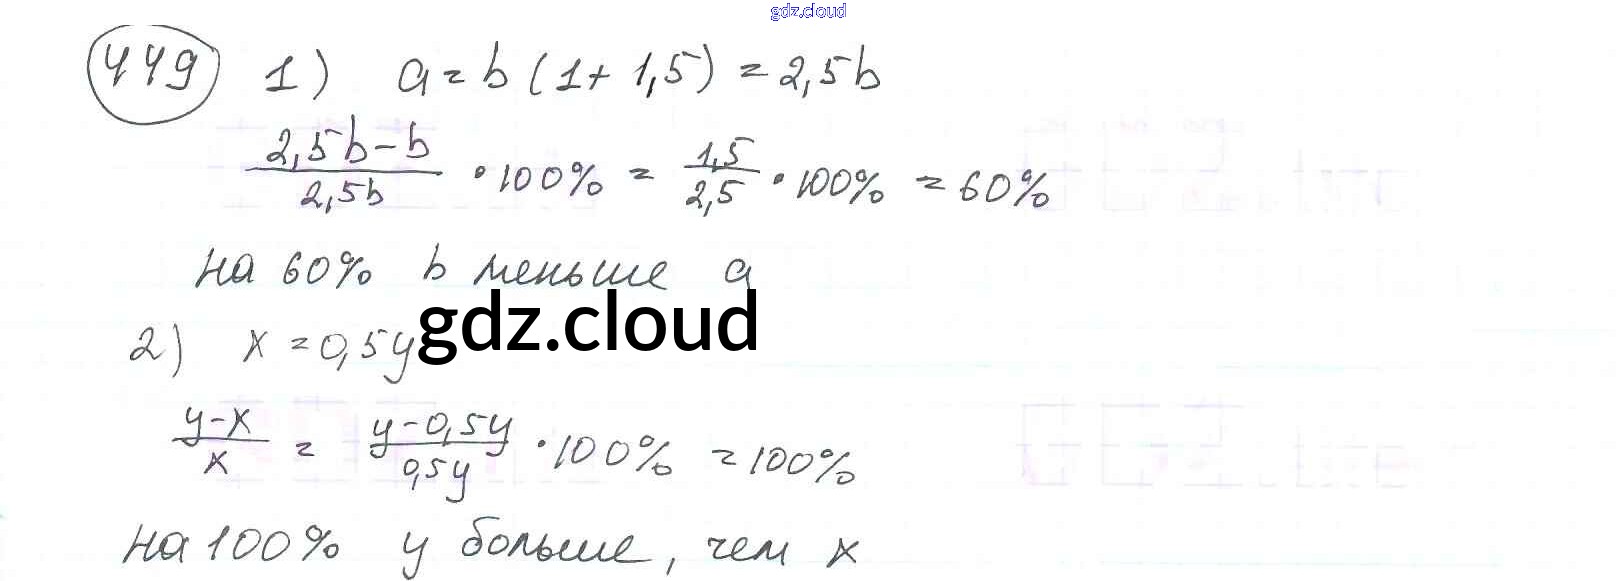 gdz.cloud
449 1) a = b (1 + 1,5) = 2,5b
2,5b - b / 2,5b · 100% = 1,5 / 2,5 · 100% = 60%
на 60% b меньше a
gdz.cloud
2) x = 0,5y
y - x / x = y - 0,5y / 0,5y · 100% = 100%
на 100% y больше, чем x